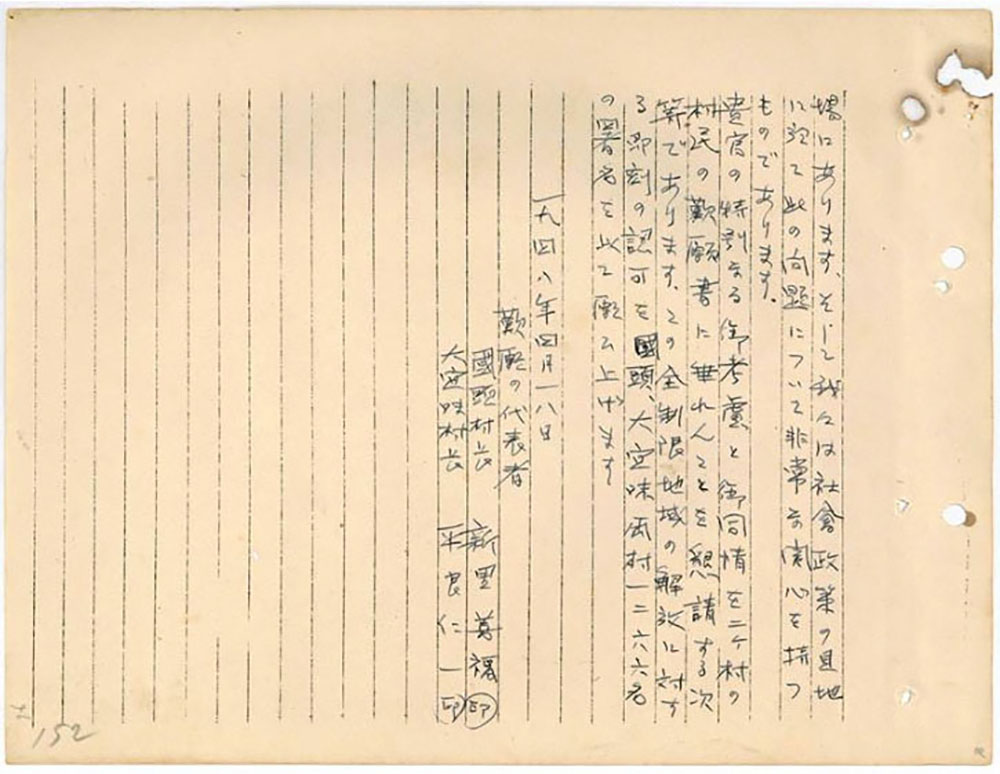 場にあります、そして我々は社會政策の見地
に須て此の向題について非常な関心を持つ
ものであります。
貴官の特別なる御考慮と御同情を二ケ村の
村民の歎願書に垂れんことを懇請する次
第であります。この全制限地域の解放に対す
る即刻の認可を國頭、大宜味両村一二六六名
の署名を以て願ひ上げます
一九四八年四月一八日
歎願の代表者
國頭村長 新里善福 印
大宜味村長 平良仁一 印
152